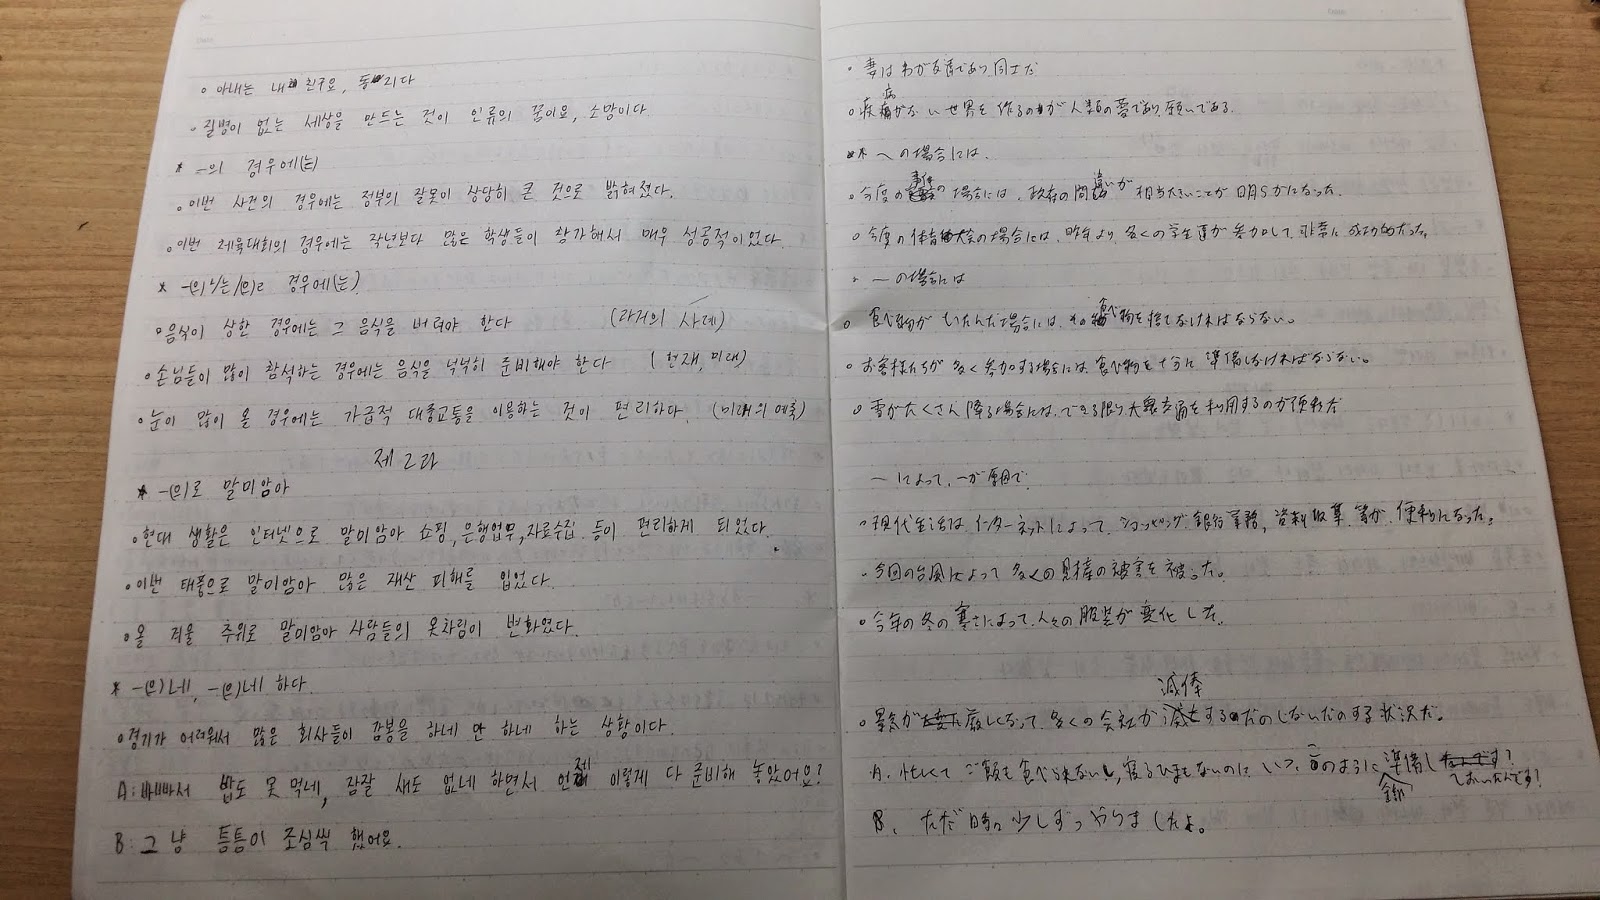 ◦ 아내는 내 친구요, 동지다
◦ 질병이 없는 세상을 만드는 것이 인류의 꿈이요, 소망이다.
* -의 경우에(는)
◦ 이번 사건의 경우에는 정부의 잘못이 상당히 큰 것으로 밝혀졌다.
◦ 이번 체육대회의 경우에는 작년보다 많은 학생들이 참가해서 매우 성공적이었다.
* -(으)ㄴ/는/(으)ㄹ 경우에(는)
◦ 음식이 상한 경우에는 그 음식을 버려야 한다 (과거의 사례)
◦ 손님들이 많이 참석하는 경우에는 음식을 넉넉히 준비해야 한다 (현재, 미래)
◦ 눈이 많이 올 경우에는 가급적 대중교통을 이용하는 것이 편리하다 (미래의 예측)
제 2과
* -(으)로 말미암아
◦ 현대 생활은 인터넷으로 말미암아 쇼핑, 은행업무, 자료수집 등이 편리하게 되었다.
◦ 이번 태풍으로 말미암아 많은 재산 피해를 입었다.
◦ 올 겨울 추위로 말미암아 사람들의 옷차림이 변화였다.
* -(으)네, -(으)네 하다
◦ 경기가 어려워서 많은 회사들이 감봉을 하네 안 하네 하는 상황이다.
A: 바빠서 밥도 못 먹네, 잠잘 새도 없네 하면서 언제 이렇게 다 준비해 놓았어요?
B: 그냥 틈틈이 조심씩 했어요.
◦ 妻はわが友達であり、同士だ
◦ 疾病がない世界を作るのが人類の夢であり、願いである.
* 〜の場合には.
◦ 今度の事件の場合には、政府の間違いが相当大きいことが明らかになった.
◦ 今度の体育大会の場合には、昨年より、多くの学生達が参加して、非常に成功的だった。
* 〜の場合には
◦ 食べ物がいたんだ場合には、その食べ物を捨てなければならない。
◦ お客様たちが多く参加する場合には食べ物を十分に準備しなければならない。
◦ 雪がたくさん降る場合には、できる限り大衆交通を利用するのが便利だ
〜によって、〜が原因で.
◦ 現代生活はインターネットによって、ショッピング、銀行業務, 資料収集、等が、便利になった。
◦ 今回の台風によって多くの の被害を被った。
◦ 今年の冬の寒さによって、人々の服装が変化した.
減俸
◦ 景気が 厳しくなって、多くの会社が するだのしないだのする状況だ。
A. 忙しくてご飯も食べられないし, 寝るひまもないのに、いつ、このように全部準備しておいたんです?
B、ただ 少しずつやりましたよ。